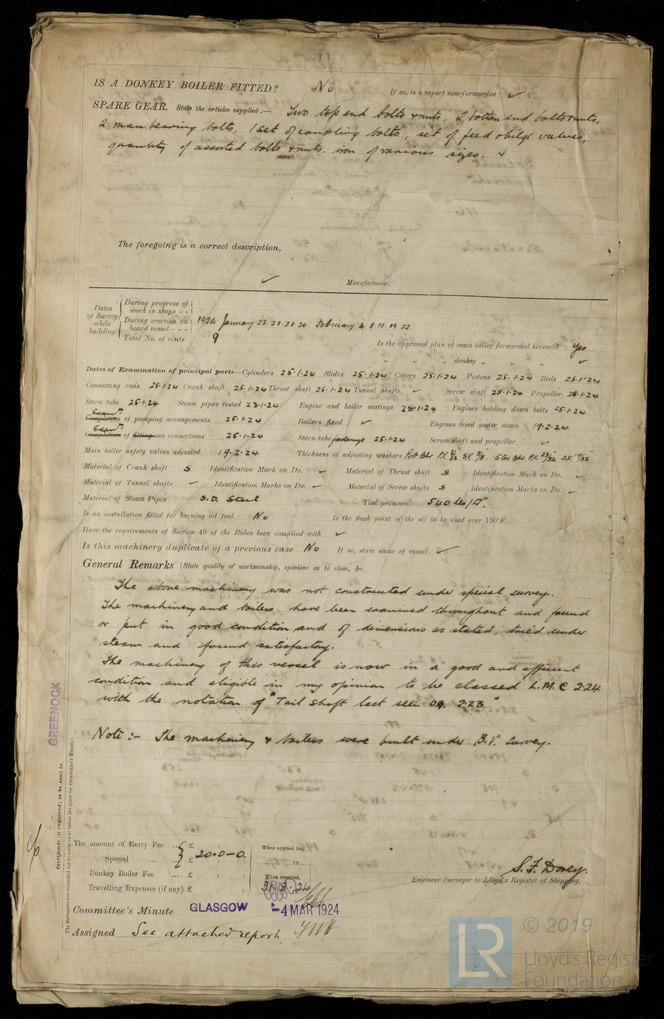 IS A DONKEY BOILER FITTED? No If so, is a report now forwarded? ✓
SPARE GEAR. State the articles supplied:— Two top end bolts & nuts, 2 bottom end bolts & nuts,
2 main bearing bolts, 1 set of coupling bolts, set of feed & bilge valves,
quantity of assorted bolts & nuts, iron of various sizes. ✓
The foregoing is a correct description,
✓ Manufacturer.
Dates of Survey while building
During progress of work in shops - -
During erection on board vessel - - - 1924 January 23 25 28 30 February 4 8 15 19 22
Total No. of visits 9
Is the approved plan of main boiler forwarded herewith Yes
" " " donkey " " " ✓
Dates of Examination of principal parts—Cylinders 25-1-24 Slides 25-1-24 Covers 25-1-24 Pistons 25-1-24 Rods 25-1-24
Connecting rods 25-1-24 Crank shaft 25-1-24 Thrust shaft 25-1-24 Tunnel shafts ✓ Screw shaft 25-1-24 Propeller 25-1-24
Stern tube 25-1-24 Steam pipes tested 23-1-24 Engine and boiler seatings 28-1-24 Engines holding down bolts 25-1-24
Completion of pumping arrangements 25-1-24 Boilers fixed ✓ Engines tried under steam 19-2-24
Completion of fitting sea connections 25-1-24 Stern tube 25-1-24 Screw shaft and propeller ✓
Main boiler safety valves adjusted 19-2-24 Thickness of adjusting washers
Material of Crank shaft S Identification Mark on Do. ✓ Material of Thrust shaft S Identification Mark on Do. ✓
Material of Tunnel shafts ✓ Identification Marks on Do. ✓ Material of Screw shafts S Identification Marks on Do. ✓
Material of Steam Pipes S.D. Steel Test pressure 540 lbs/□"
Is an installation fitted for burning oil fuel No Is the flash point of the oil to be used over 150°F.
Have the requirements of Section 49 of the Rules been complied with ✓
Is this machinery duplicate of a previous case No If so, state name of vessel ✓
General Remarks (State quality of workmanship, opinions as to class, &c.
The above machinery was not constructed under special survey.
The machinery and boilers have been examined throughout and found
or put in good condition and of dimensions as stated, tried under
steam and found satisfactory.
The machinery of this vessel is now in a good and efficient
condition and eligible in my opinion to be classed L.M.C 2-24
with the notation of "Tail Shaft last seen 09. 2-23"
Note:- The machinery & boilers were built under B.V. Survey.
GREENOCK
Certificate (if required) to be sent to
The amount of Entry Fee ... £
Special ... £ 20-0-0
Donkey Boiler Fee ... £ : :
Travelling Expenses (if any) £ : :
When applied for,
19
When received,
S. F. Dorey.
Engineer Surveyor to Lloyd's Register of Shipping.
Committee's Minute GLASGOW -4 MAR 1924
Assigned See attached report.
© 2019
LR
Lloyd's Register
Foundation